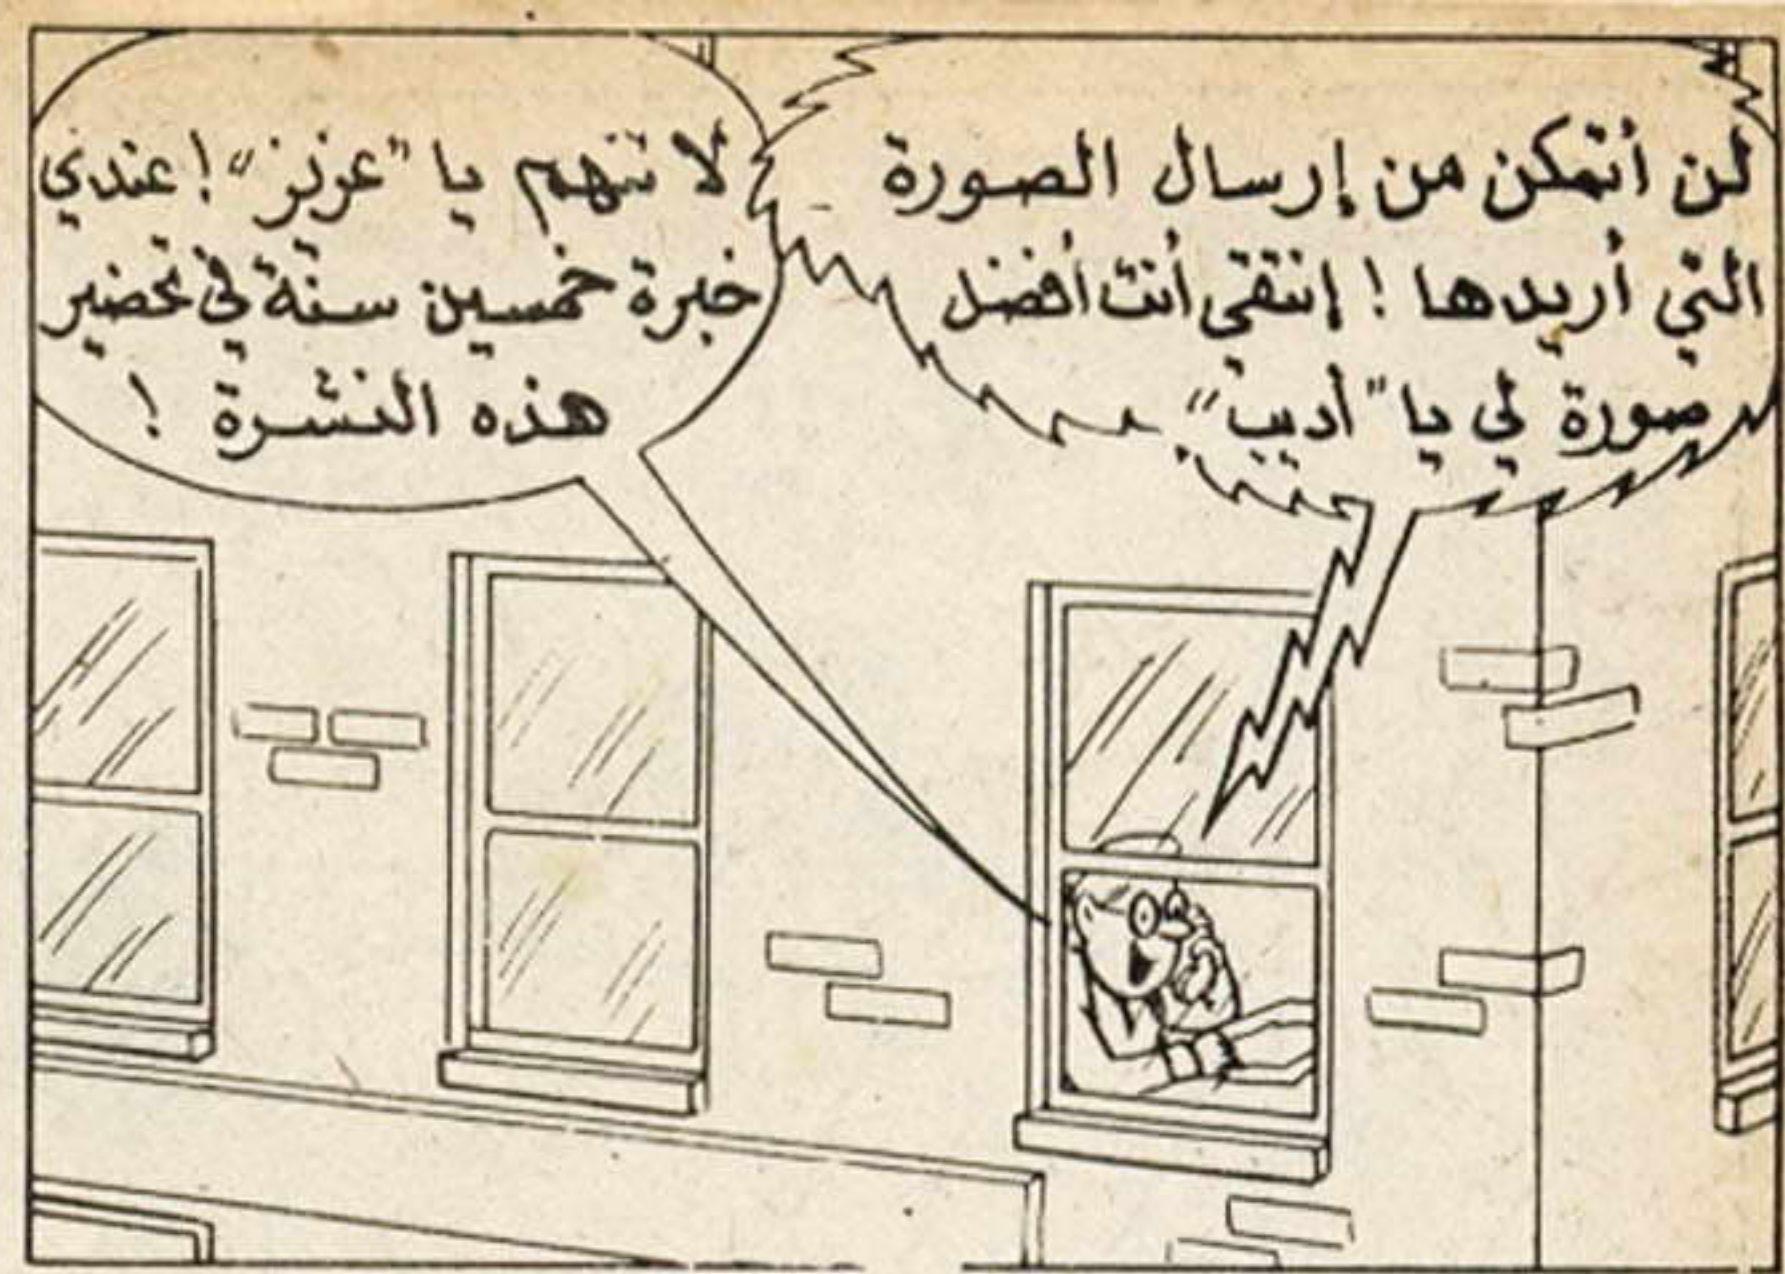 لن أتمكن من إرسال الصورة
التي أريدها ! إنتقي أنت أفضل
صورة لي يا "أديب"
لا تهتم يا "عزيز" ! عندي
خبرة خمسين سنة في تحضير
هذه النشرة !